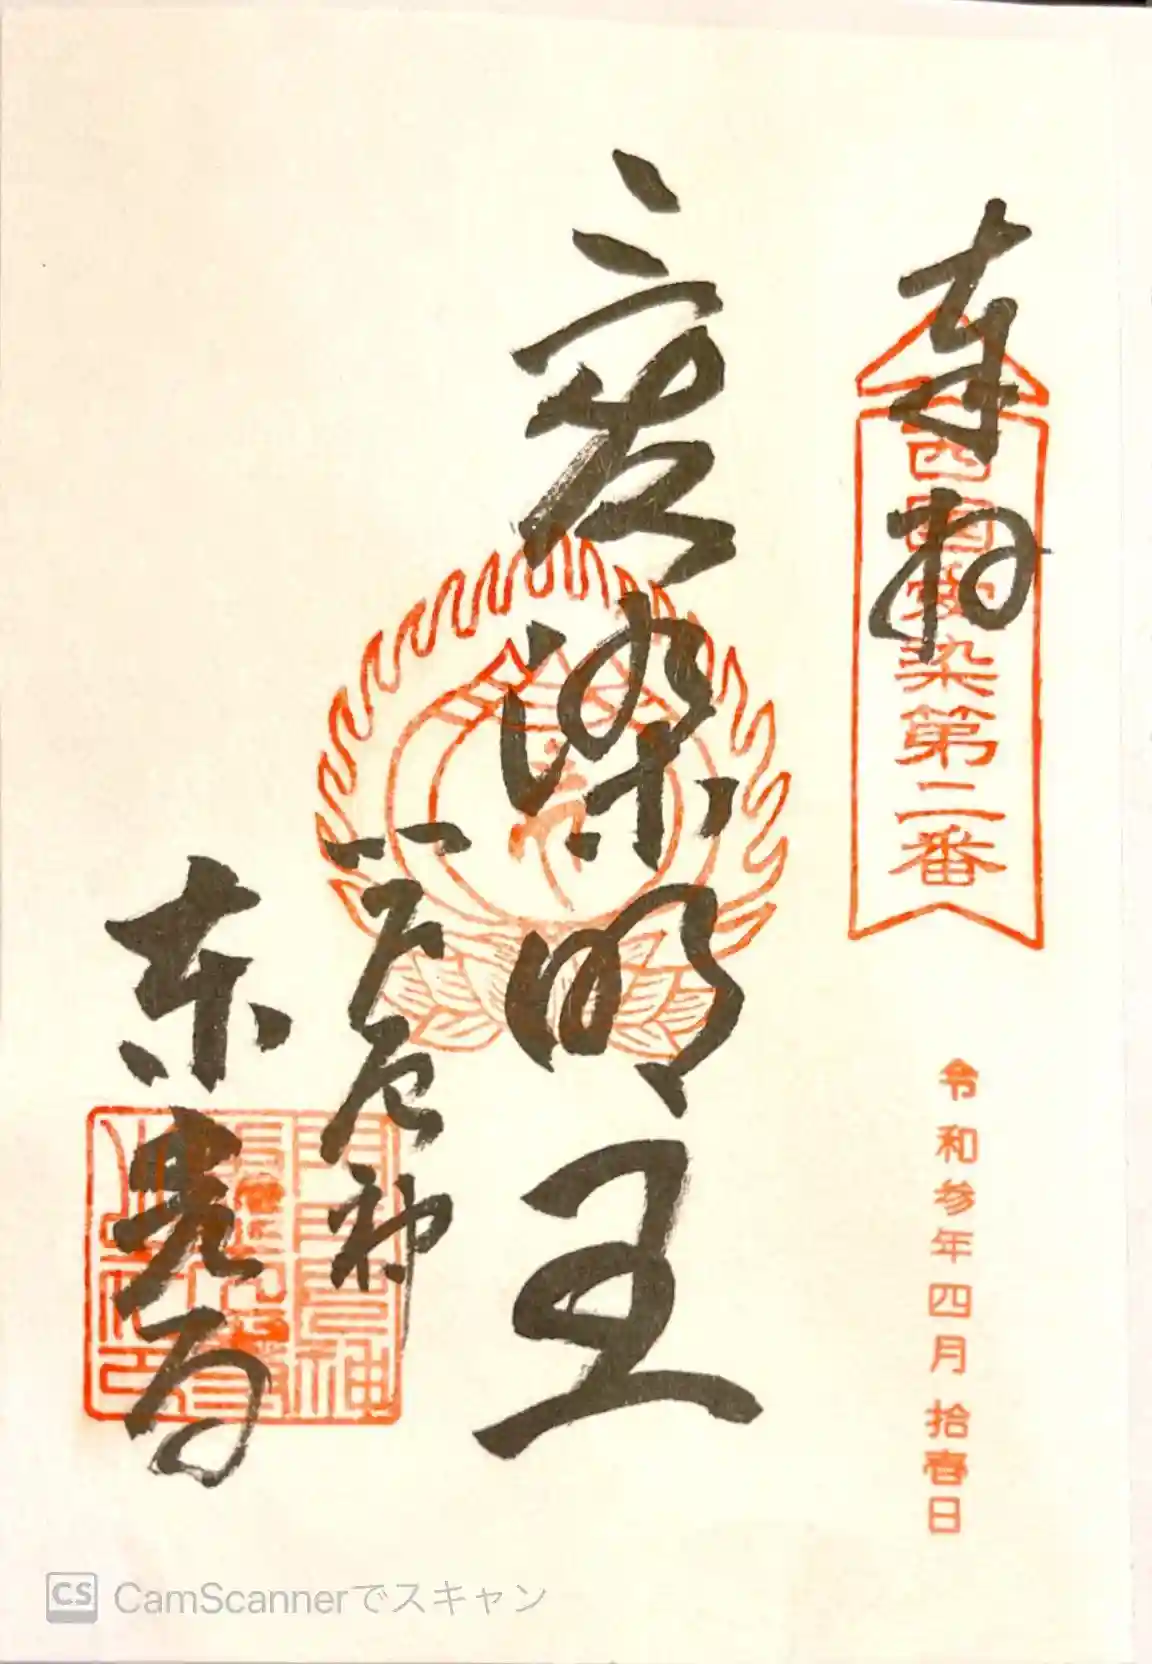 奉拝
西国愛染第二番
令和参年四月拾壱日
愛染明王
門戸厄神
東光寺
CS CamScannerでスキャン